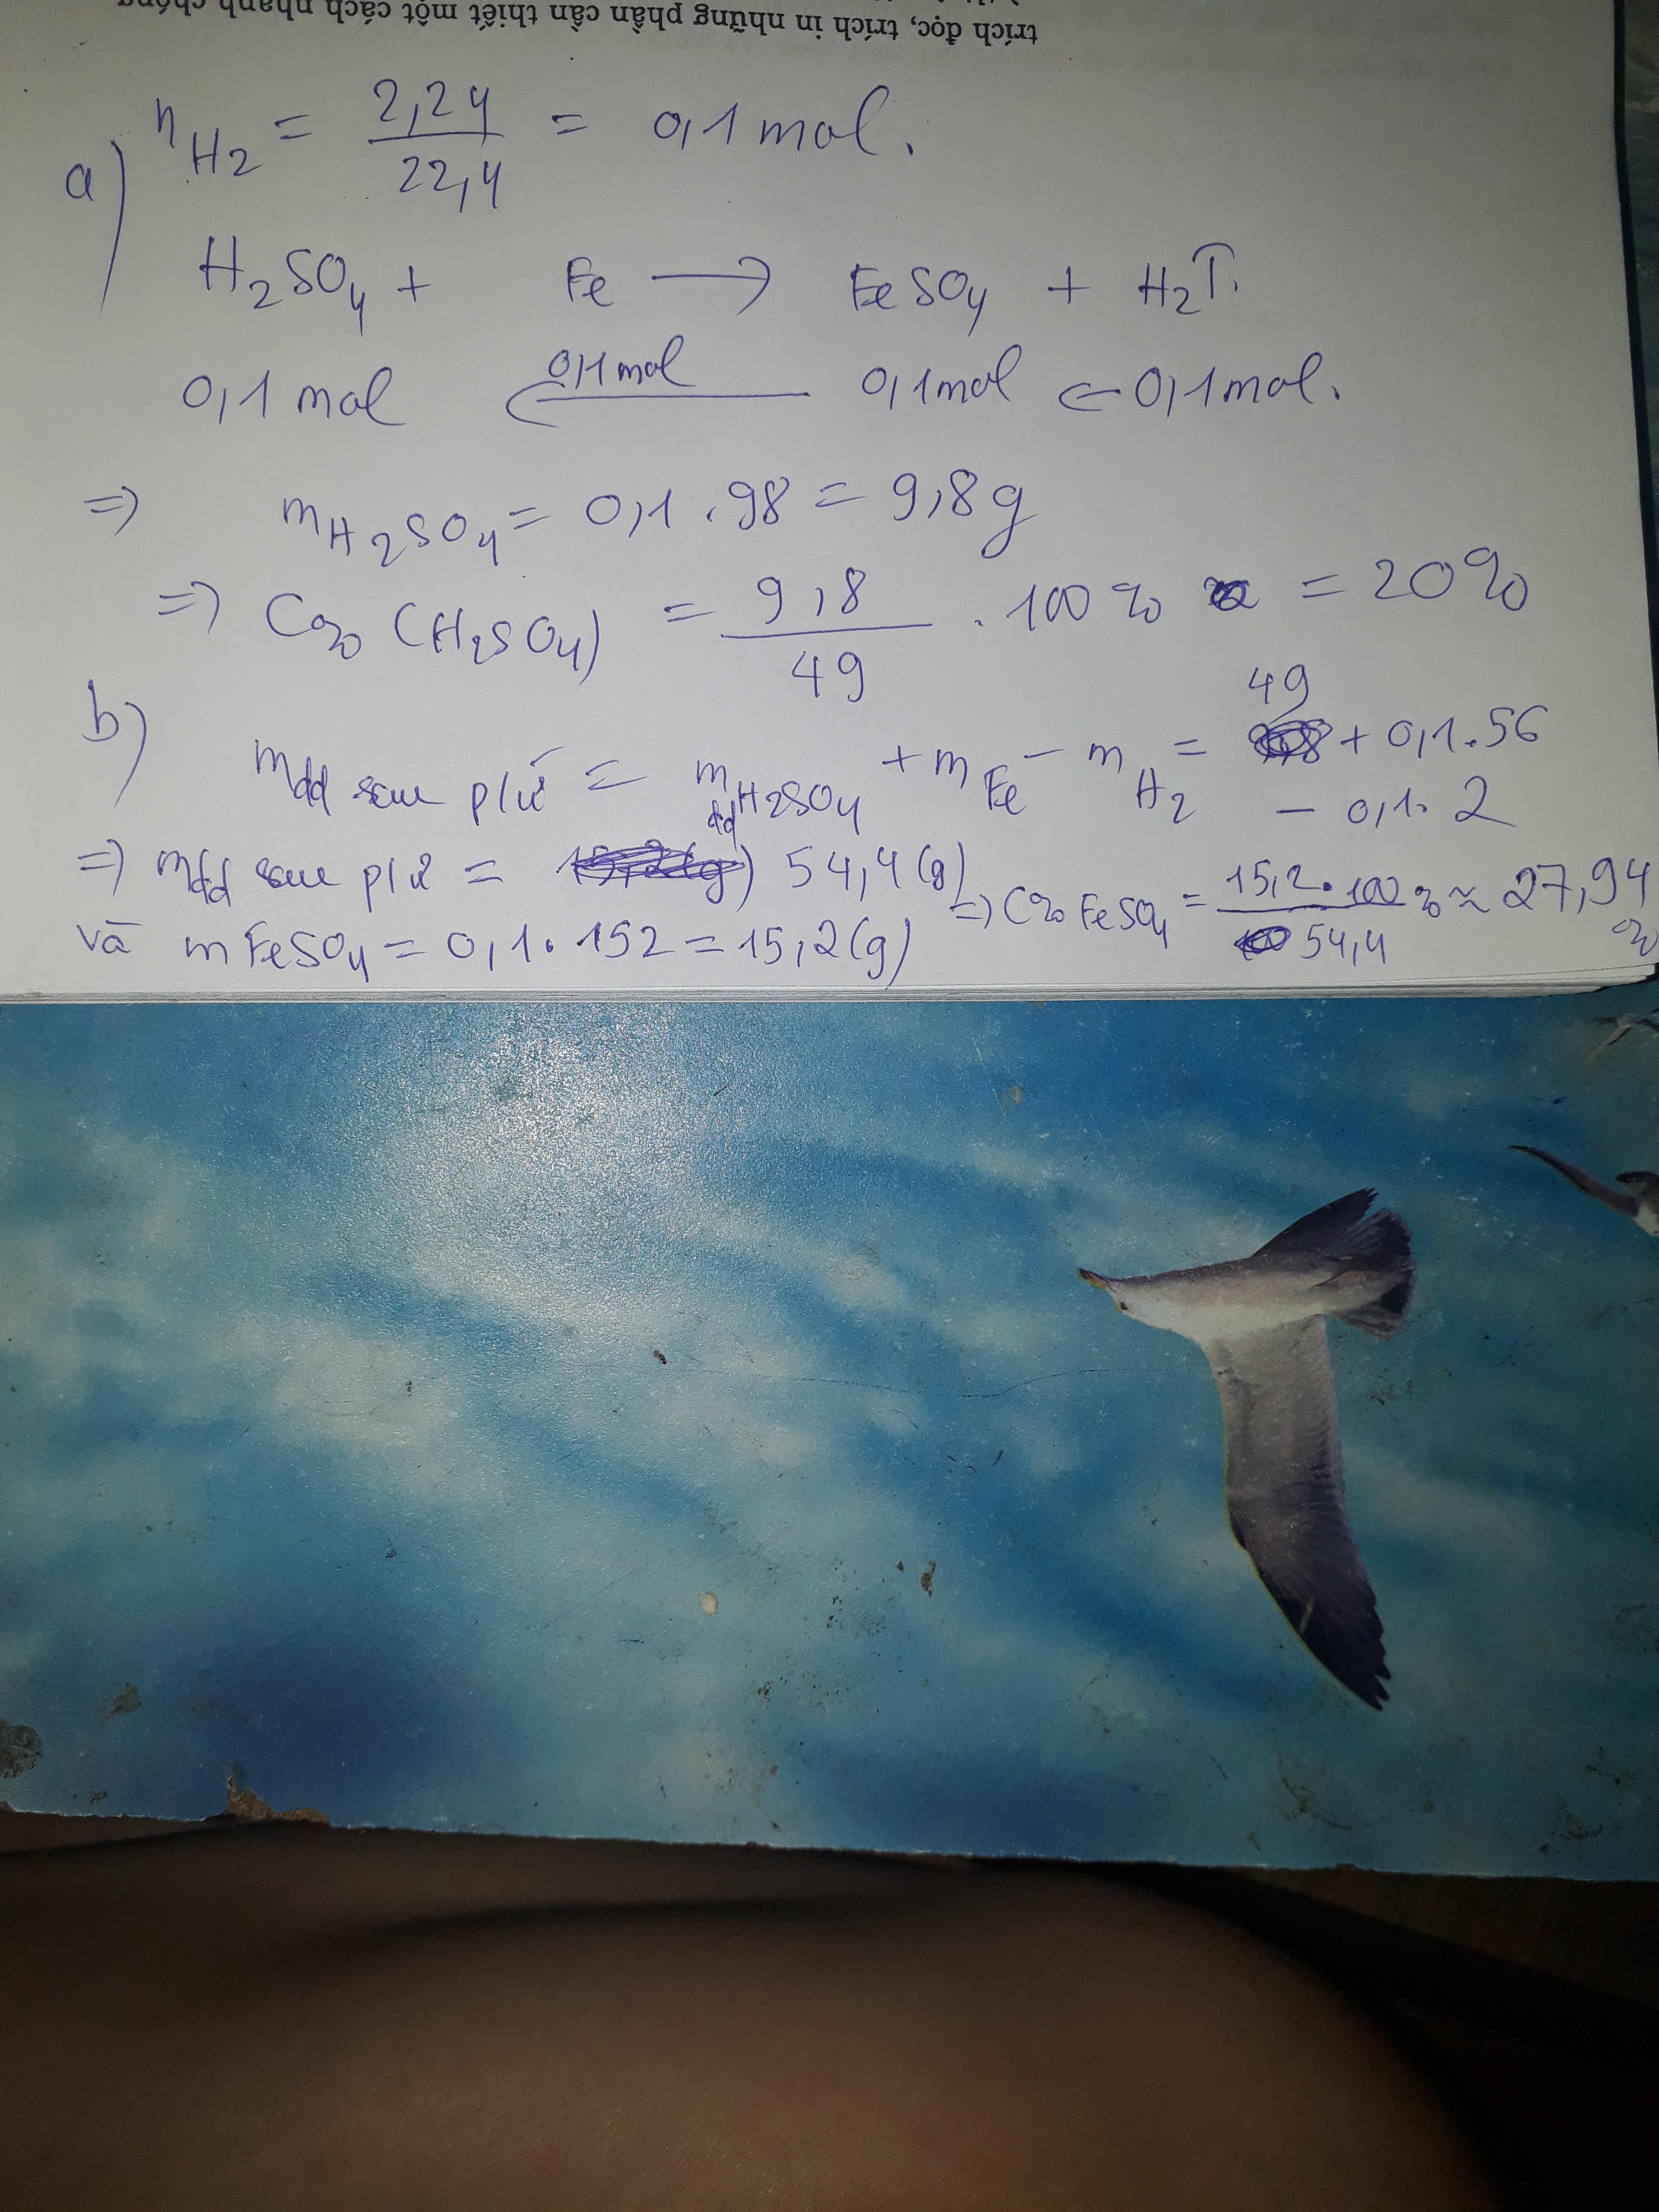 trích đọc, trích in những phần cần thiết một cách nhanh chóng
a) nH2 = 2,24 / 22,4 = 0,1 mol.
H2SO4 + Fe → FeSO4 + H2↑.
0,1 mol ← 0,1 mol 0,1 mol ← 0,1 mol.
=> mH2SO4 = 0,1 . 98 = 9,8g
=> C% (H2SO4) = 9,8 / 49 . 100% = 20%
b) mdd sau p/ứ = mdd H2SO4 + mFe - mH2 = 49 + 0,1.56 - 0,1.2
=> mdd sau p/ứ = 54,4 (g)
và mFeSO4 = 0,1.152 = 15,2 (g) => C% FeSO4 = 15,2.100 / 54,4 % ≈ 27,94 %